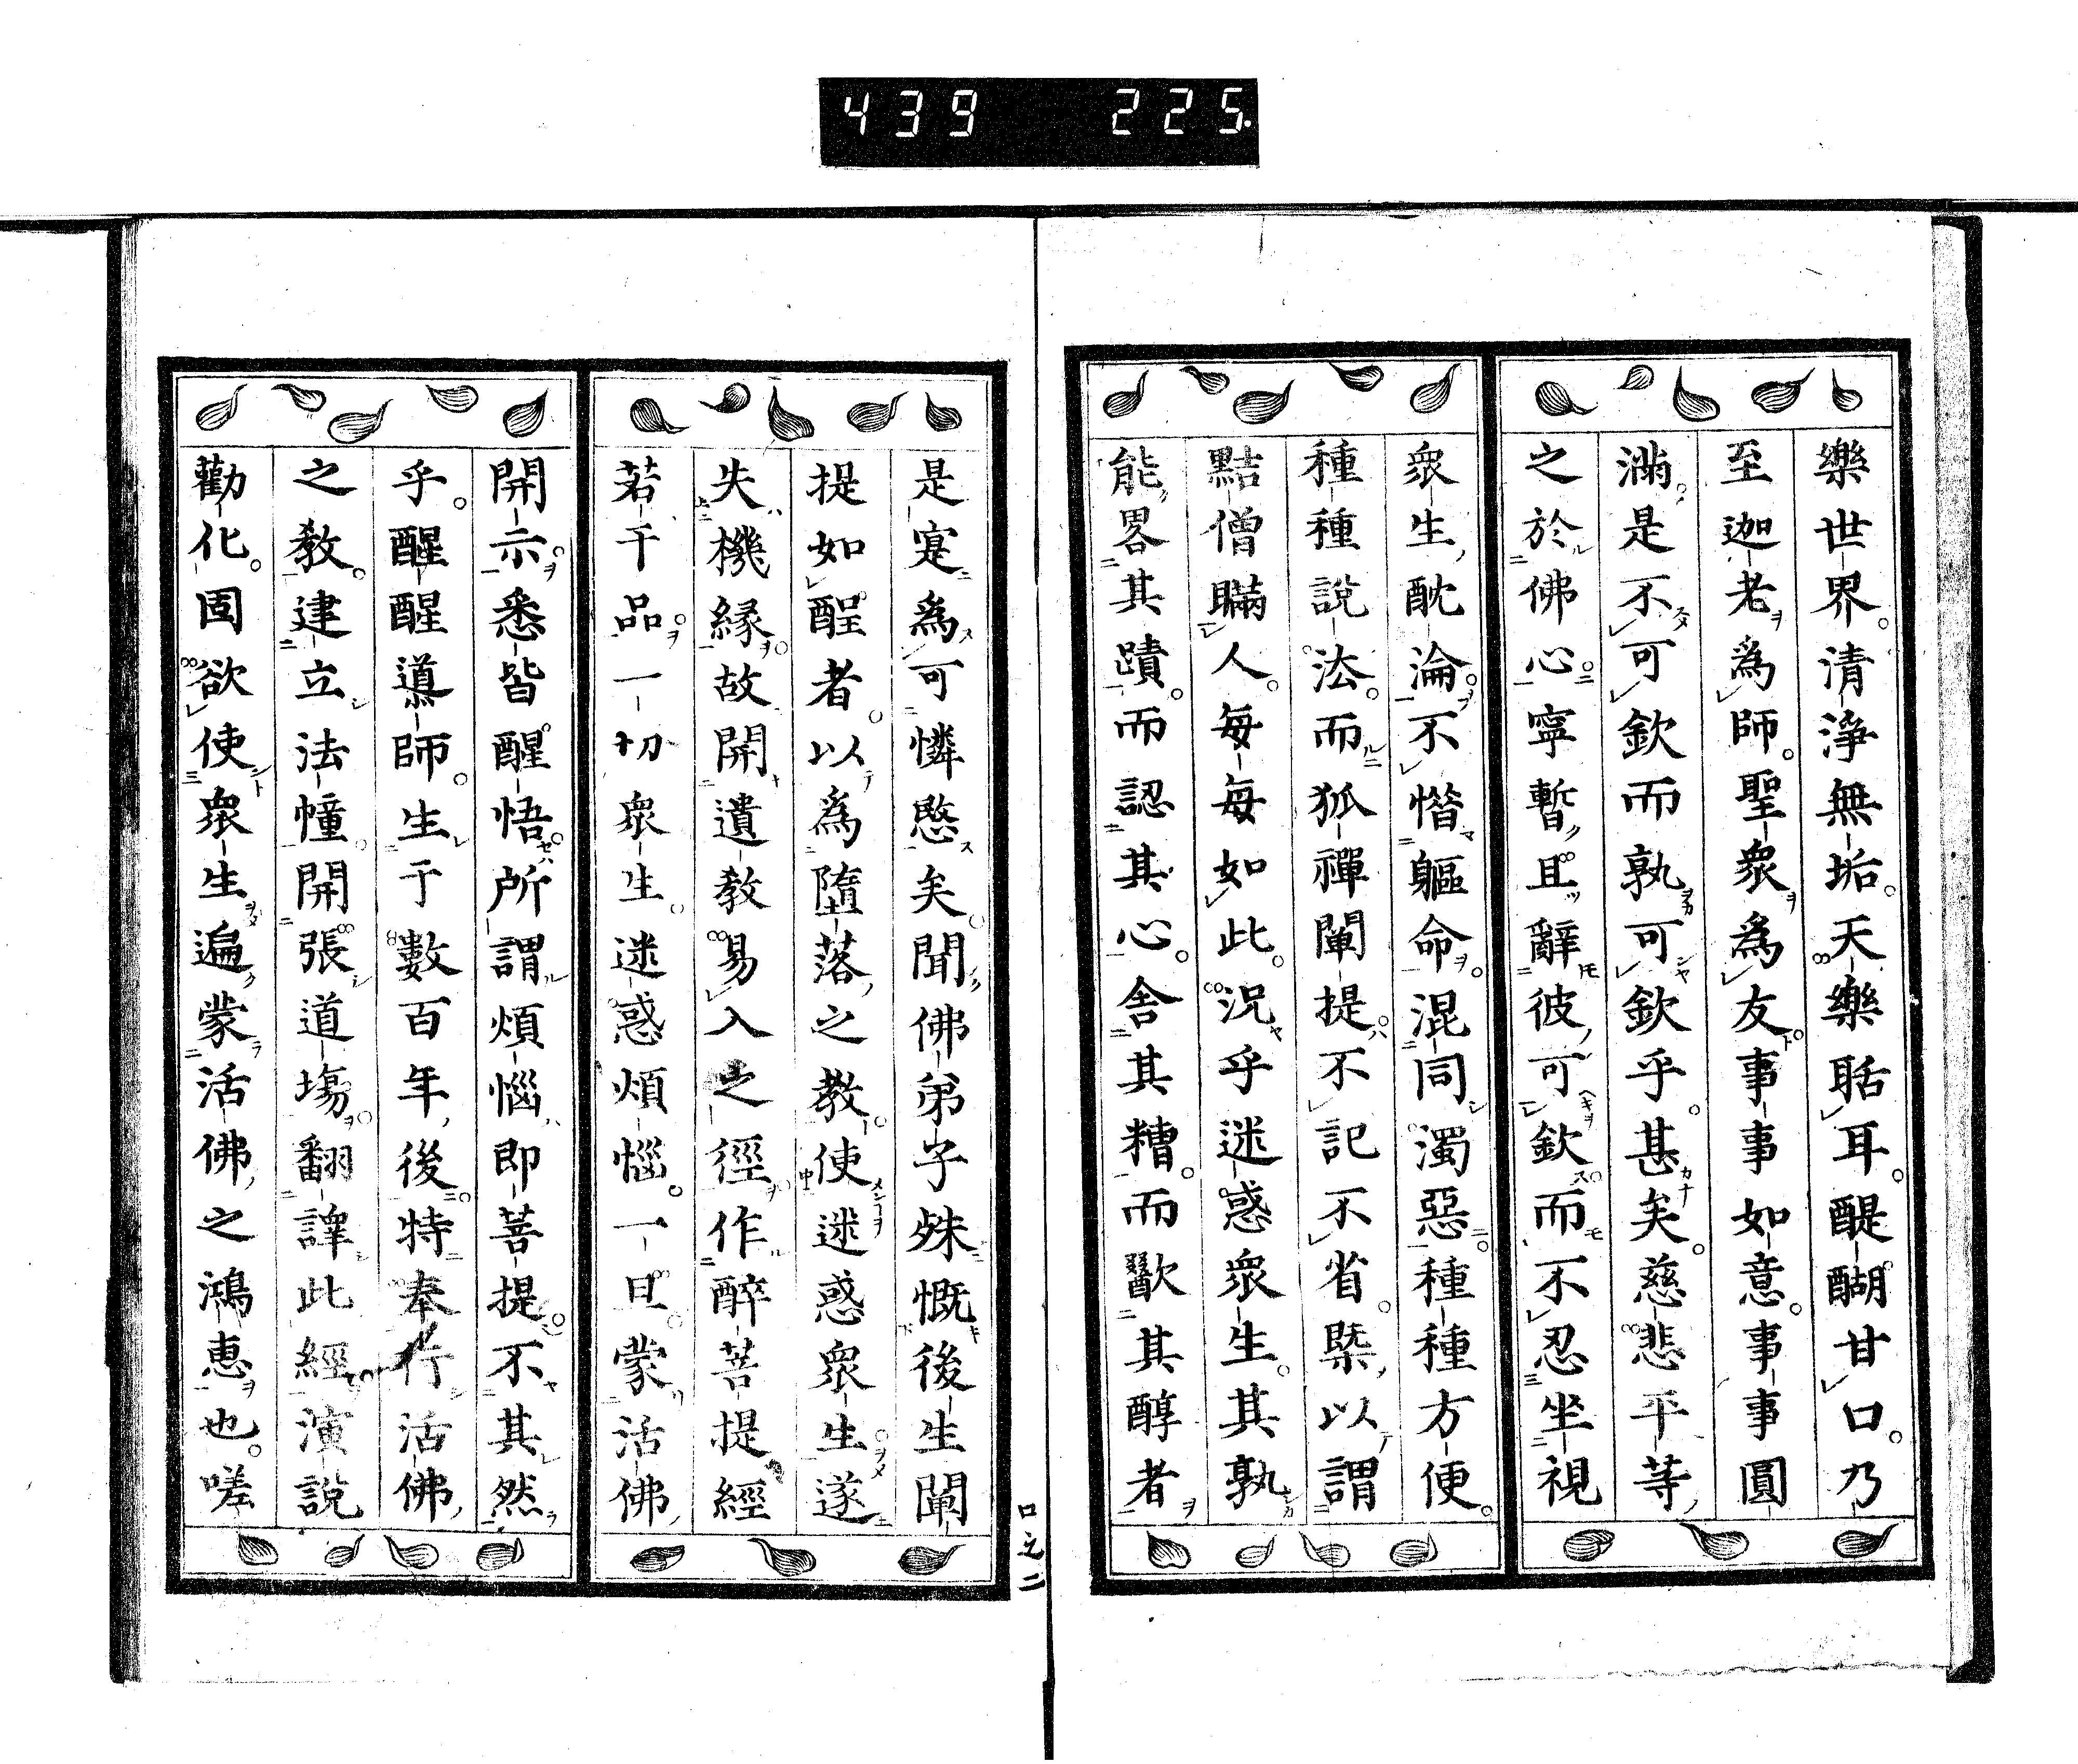 439 225.
樂世界。清淨無垢。天樂聒耳。醍醐甘口。乃
至迦老爲師。聖衆爲友事事如意。事事圓
滿。是不可欽而孰可欽乎。甚矣。慈悲平等
之於佛心。寧暫且辭彼可欽而不忍坐視
衆生酖淪。不惜軀命。混同濁惡。種種方便。
種種說法。而狐禪闡提不記不省。槩以謂
黠僧瞞人。每每如此。況乎迷惑衆生。其孰
能畧其蹟。而認其心。舍其糟。而歠其醇者
是寔爲可憐愍矣。聞佛弟子殊慨後生闡
提如酲者。以爲墮落之教。使迷惑衆生遂
失機緣。故開遺教易入之徑。作醉菩提經
若干品。一切衆生。迷惑煩惱。一旦。蒙活佛
開示。悉皆醒悟所謂煩惱即菩提。不其然
乎。醒醒道師。生于數百年後。特奉行活佛
之教。建立法幢。開張道場。翻譯此經演說
勸化。固欲使衆生遍蒙活佛之鴻惠也。嗟
口之二